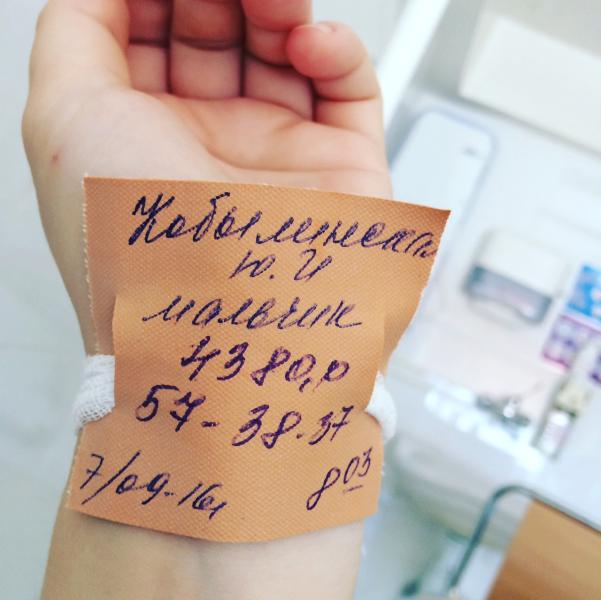 Кобылинская
Ю. И
мальчик
4380,0
57-38-37
7/09-16г 8 03